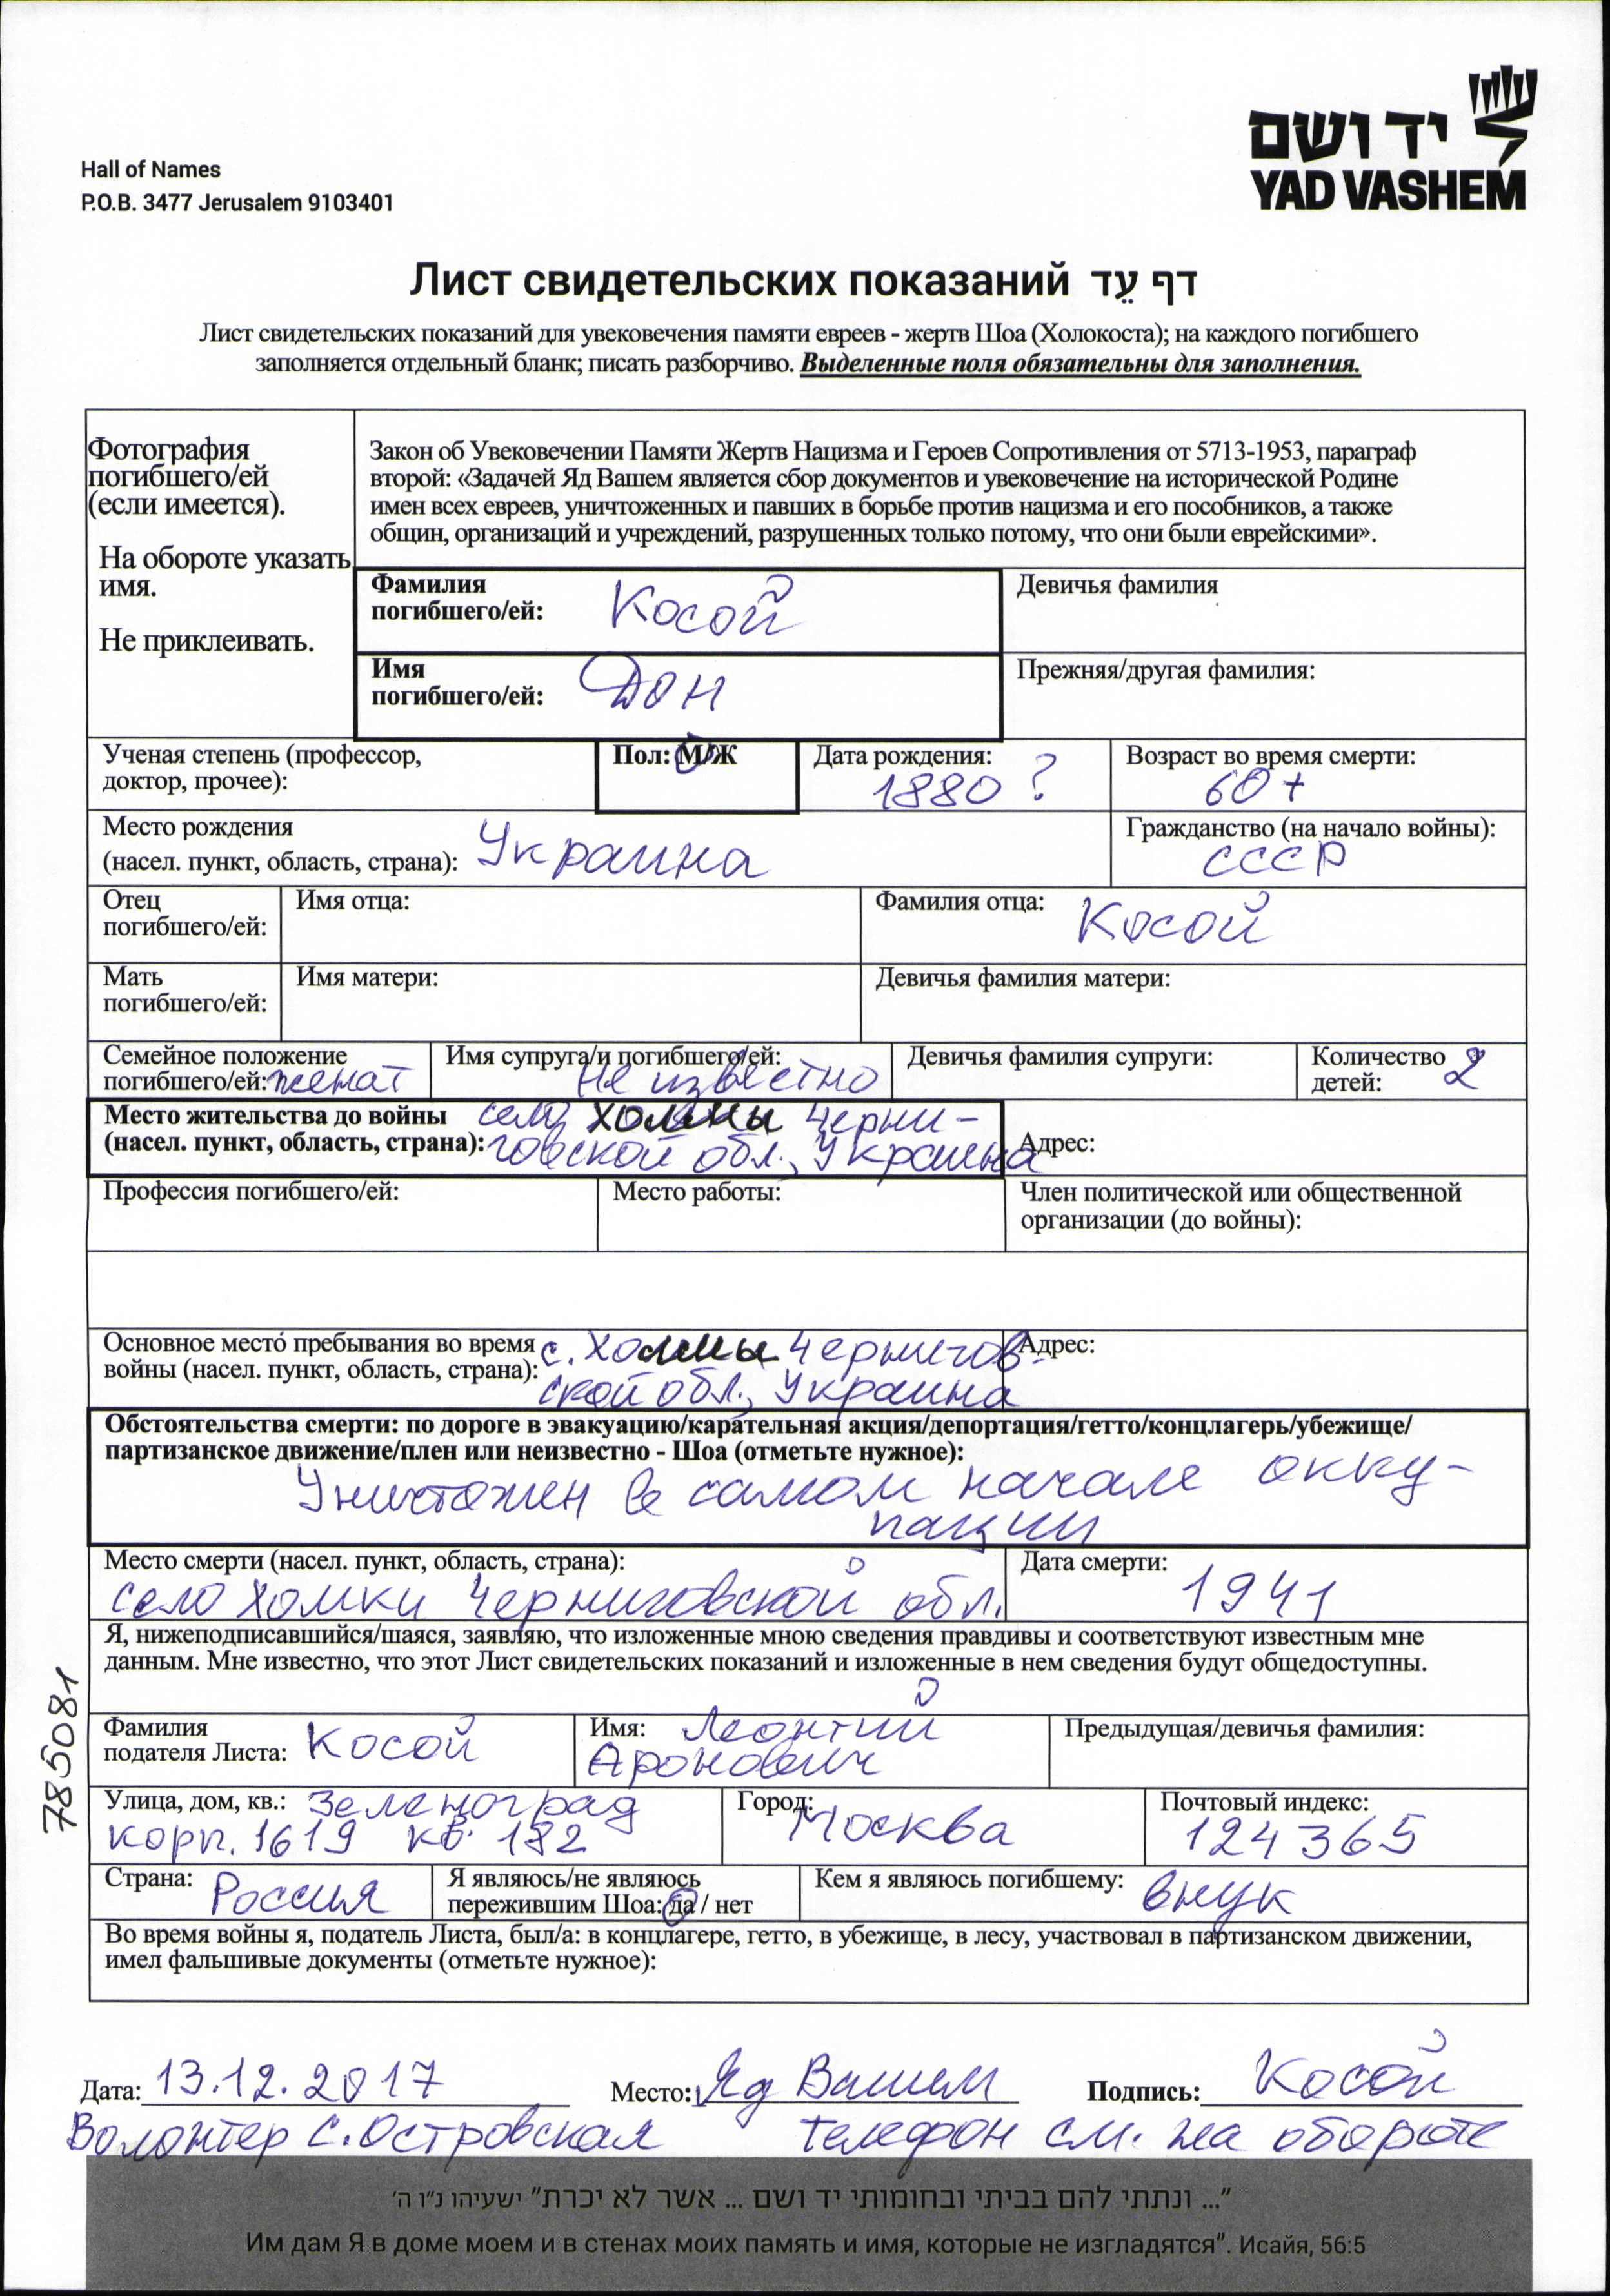 יד ושם
YAD VASHEM
Hall of Names
P.O.B. 3477 Jerusalem 9103401
Лист свидетельских показаний דף עֵד
Лист свидетельских показаний для увековечения памяти евреев - жертв Шоа (Холокоста); на каждого погибшего
заполняется отдельный бланк; писать разборчиво. Выделенные поля обязательны для заполнения.
Фотография
погибшего/ей
(если имеется).
На обороте указать
имя.
Не приклеивать.
Закон об Увековечении Памяти Жертв Нацизма и Героев Сопротивления от 5713-1953, параграф
второй: «Задачей Яд Вашем является сбор документов и увековечение на исторической Родине
имен всех евреев, уничтоженных и павших в борьбе против нацизма и его пособников, а также
общин, организаций и учреждений, разрушенных только потому, что они были еврейскими».
Фамилия
погибшего/ей: Косой
Девичья фамилия
Имя
погибшего/ей: Дон
Прежняя/другая фамилия:
Ученая степень (профессор,
доктор, прочее):
Пол: М/Ж
Дата рождения:
1880 ?
Возраст во время смерти:
60+
Место рождения
(насел. пункт, область, страна): Украина
Гражданство (на начало войны):
СССР
Отец
погибшего/ей:
Имя отца:
Фамилия отца: Косой
Мать
погибшего/ей:
Имя матери:
Девичья фамилия матери:
Семейное положение
погибшего/ей: женат
Имя супруга/и погибшего/ей:
Не известно
Девичья фамилия супруги:
Количество
детей: 2
Место жительства до войны село Холмы Черни-
(насел. пункт, область, страна): говской обл., Украина
Адрес:
Профессия погибшего/ей:
Место работы:
Член политической или общественной
организации (до войны):
Основное место пребывания во время с. Холмы Чернигов-
войны (насел. пункт, область, страна): ской обл., Украина
Адрес:
Обстоятельства смерти: по дороге в эвакуацию/карательная акция/депортация/гетто/концлагерь/убежище/
партизанское движение/плен или неизвестно - Шоа (отметьте нужное):
Уничтожен в самом начале окку-
пации
Место смерти (насел. пункт, область, страна):
село Холмки Черниговской обл.
Дата смерти:
1941
Я, нижеподписавшийся/шаяся, заявляю, что изложенные мною сведения правдивы и соответствуют известным мне
данным. Мне известно, что этот Лист свидетельских показаний и изложенные в нем сведения будут общедоступны.
785081
Фамилия
подателя Листа: Косой
Имя: Леонтий
Аронович
Предыдущая/девичья фамилия:
Улица, дом, кв.: Зеленоград
корп. 1619 кв. 182
Город:
Москва
Почтовый индекс:
124365
Страна: Россия
Я являюсь/не являюсь
пережившим Шоа: да / нет
Кем я являюсь погибшему: внук
Во время войны я, податель Листа, был/а: в концлагере, гетто, в убежище, в лесу, участвовал в партизанском движении,
имел фальшивые документы (отметьте нужное):
Дата: 13.12.2017 Место: Яд Вашем Подпись: Косой
Волонтер С. Островская Телефон см. на обороте
"... ונתתי להם בביתי ובחומותי יד ושם ... אשר לא יכרת" ישעיהו נ"ו ה'
Им дам Я в доме моем и в стенах моих память и имя, которые не изгладятся". Исайя, 56:5